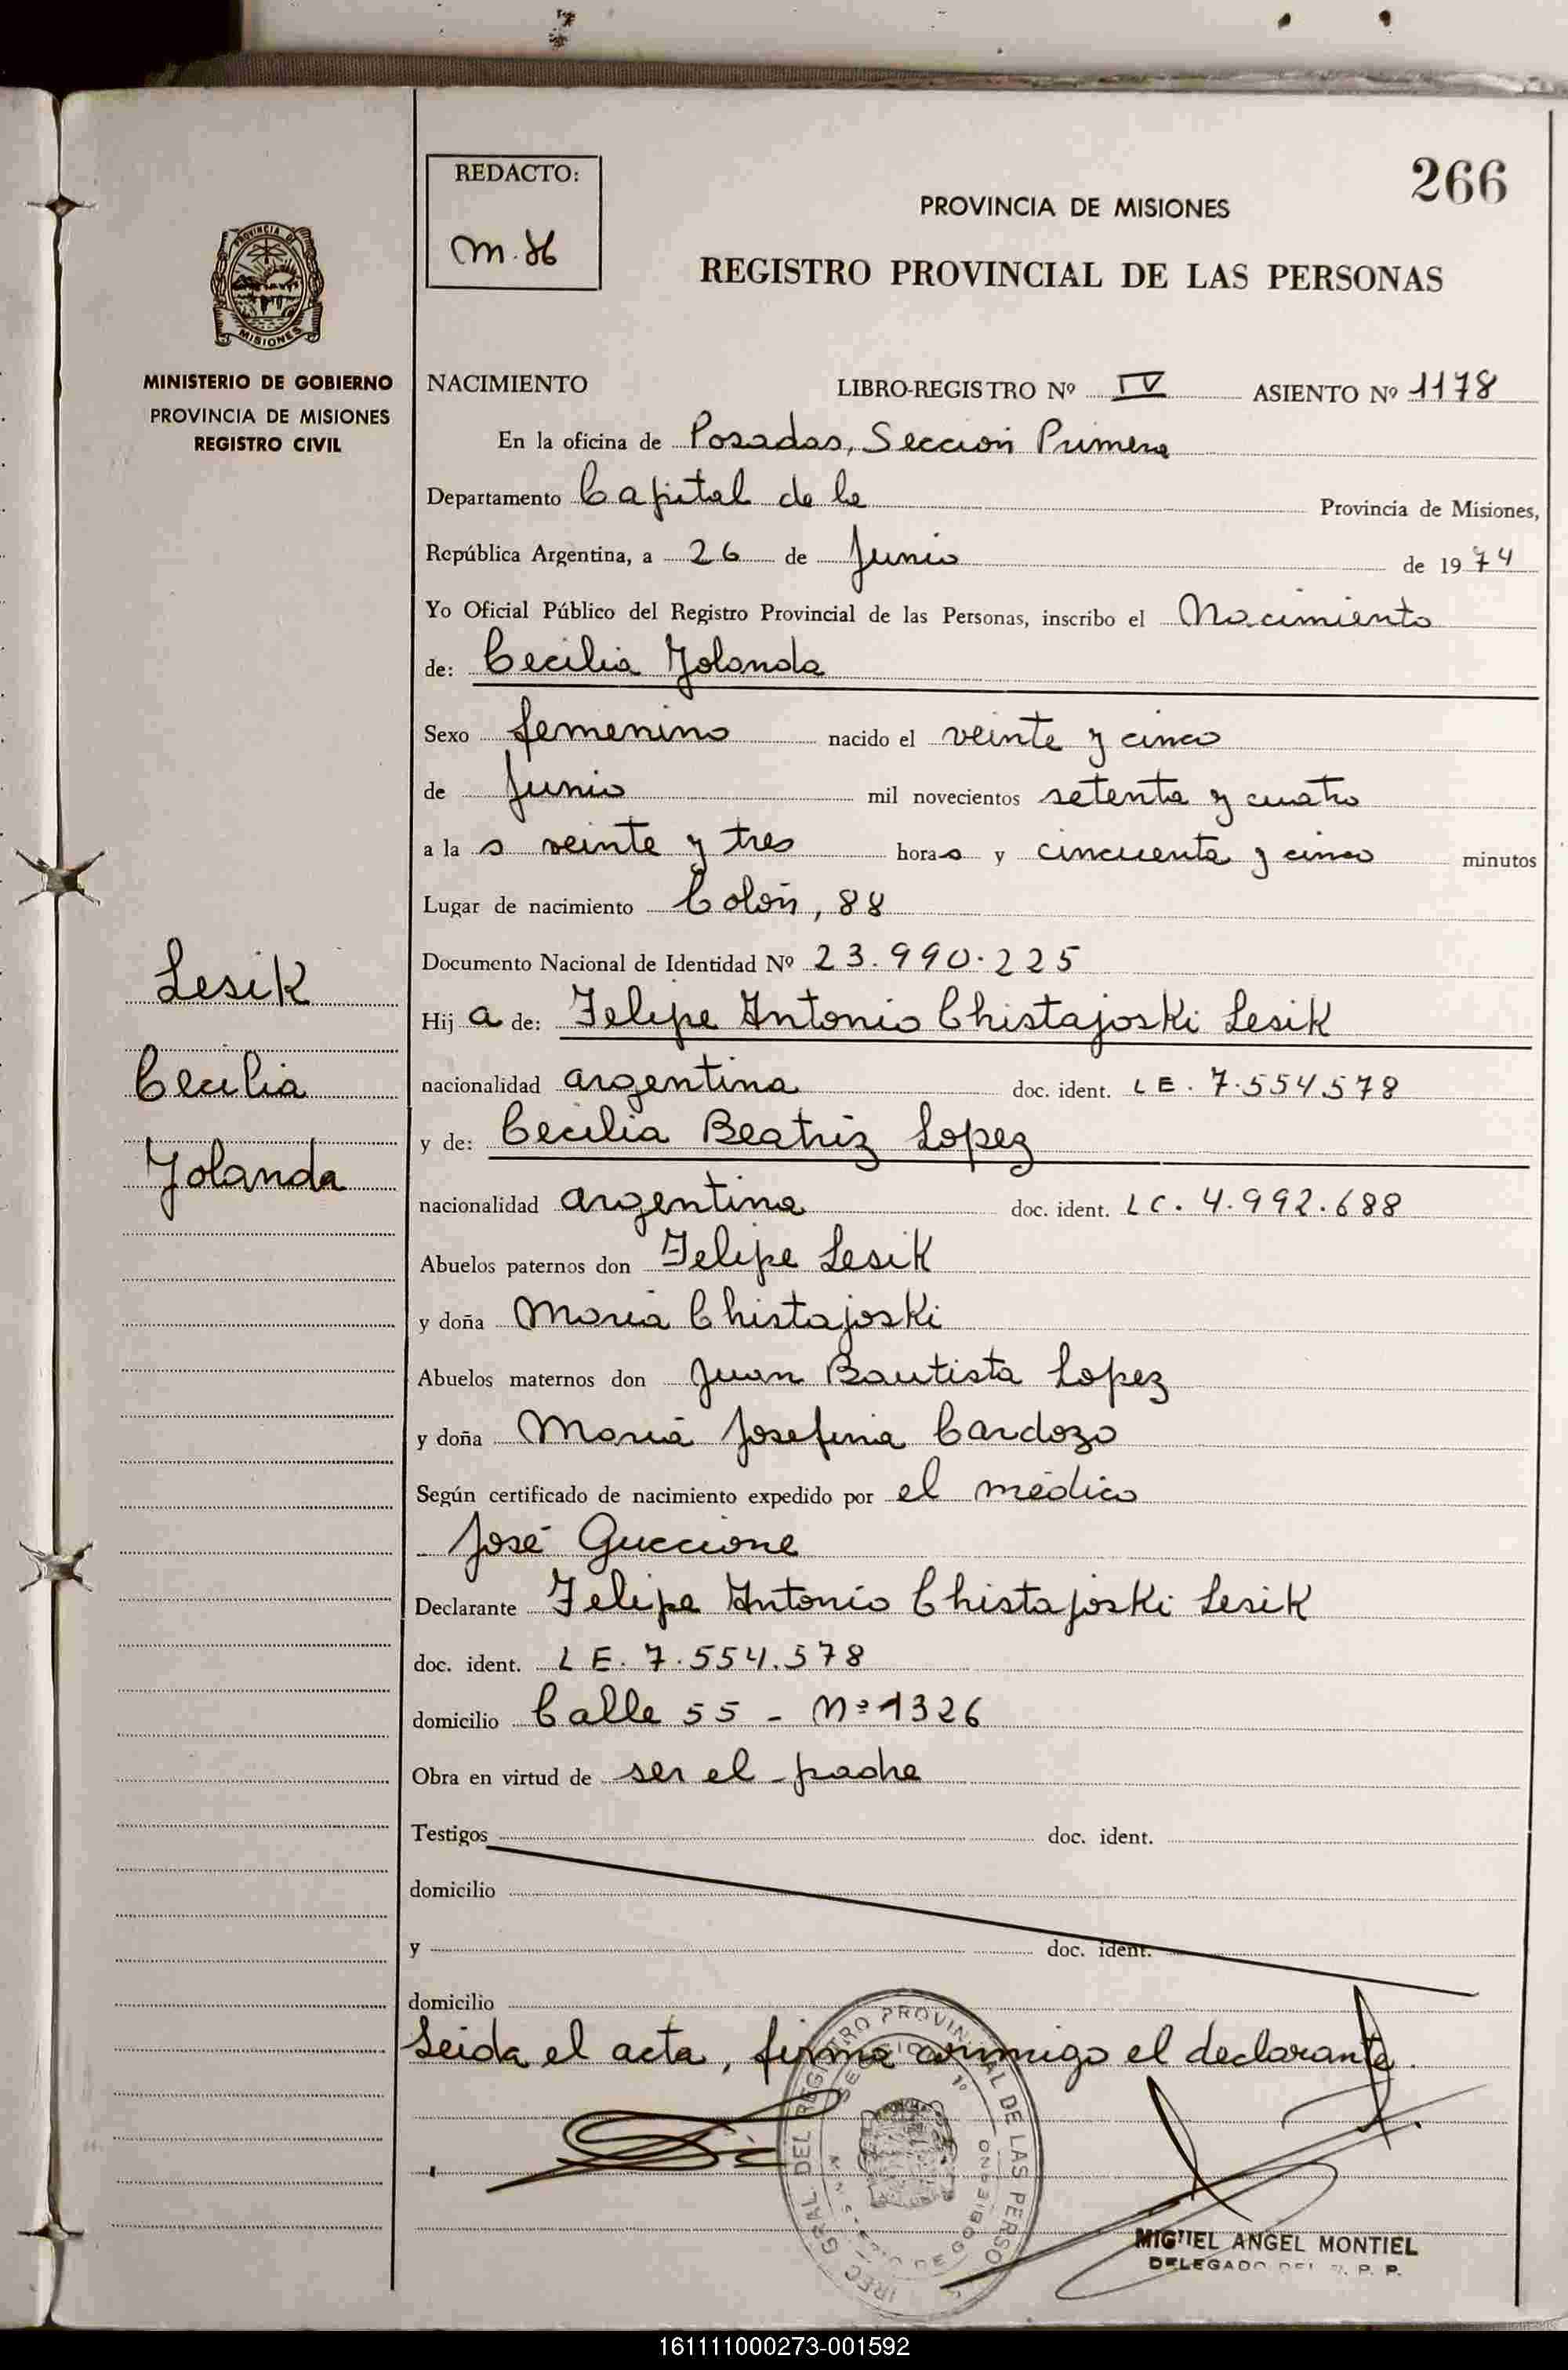 266
REDACTO:
PROVINCIA DE MISIONES
REGISTRO PROVINCIAL DE LAS PERSONAS
PROVINCIA DE
MISIONES
MINISTERIO DE GOBIERNO
PROVINCIA DE MISIONES
REGISTRO CIVIL
NACIMIENTO LIBRO-REGISTRO Nº IV ASIENTO Nº 1178
En la oficina de Posadas, Sección Primera
Departamento Capital de la Provincia de Misiones,
República Argentina, a 26 de Junio de 1974
Yo Oficial Público del Registro Provincial de las Personas, inscribo el Nacimiento
de: Cecilia Yolanda
Sexo femenino nacido el veinte y cinco
de Junio mil novecientos setenta y cuatro
a la s veinte y tres hora s y cincuenta y cinco minutos
Lugar de nacimiento Colón, 88
Documento Nacional de Identidad Nº 23.990.225
Lesik
Cecilia
Yolanda
Hij a de: Felipe Antonio Chistajoski Lesik
nacionalidad argentina doc. ident. LE. 7.554578
y de: Cecilia Beatriz Lopez
nacionalidad argentina doc. ident. LC. 4.992.688
Abuelos paternos don Felipe Lesik
y doña María Chistajoski
Abuelos maternos don Juan Bautista Lopez
y doña María Josefina Cardozo
Según certificado de nacimiento expedido por el médico
José Guccione
Declarante Felipe Antonio Chistajoski Lesik
doc. ident. LE. 7.554.578
domicilio Calle 55 - Nº 1326
Obra en virtud de ser el padre
Testigos doc. ident.
domicilio
y doc. ident.
domicilio
Leida el acta, firma conmigo el declarante.
MIGUEL ANGEL MONTIEL
DELEGADO DEL R. P. P.
161111000273-001592